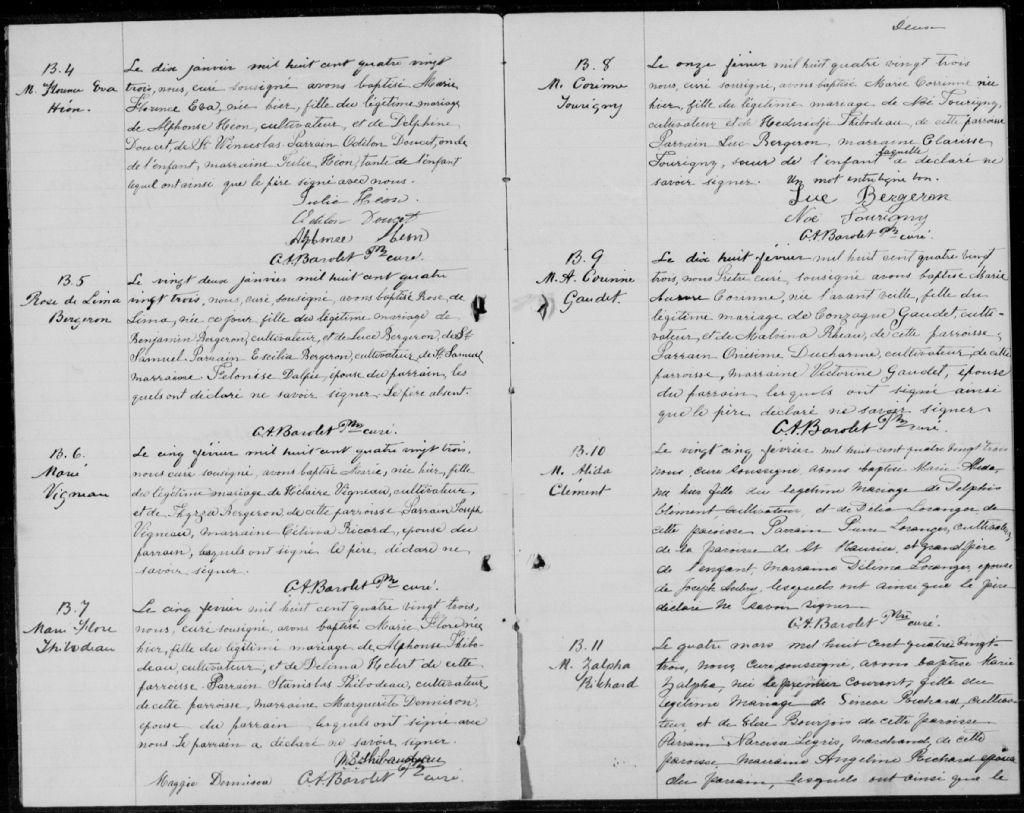 B.4
M. Florence Eva
Héon.
Le dix janvier mil huit cent quatre vingt
trois, nous, curé sousigné avons baptisé Marie
Florence Eva, née hier, fille du légitime mariage
de Alphonse Heon, cultivateur, et de Delphine
Doucet, de St Wenceslas. Parrain Odilon Doucet, oncle
de l'enfant, marraine Julie Héon, tante de l'enfant
lequel ont ainsi que le père signé avec nous.
Julia Heon.
Odilon Doucet
Alphonse Heon
C.A. Barolet Ptre curé.
B.5
Rose de Lima
Bergeron
Le vingt deux janvier mil huit cent quatre
vingt trois, nous, curé, sousigné, avons baptisé Rose de
Lima, née ce jour fille du légitime mariage de
Benjamin Bergeron, cultivateur, et de Luce Bergeron, de St
Samuel. Parrain Bergeron, cultivateur, de St Samuel
marraine épouse du parrain, les
quels ont déclaré ne savoir signer. Le père absent.
C.A. Barolet Ptre curé.
B.6.
Marie
Vigneau
Le cinq février mil huit cent quatre vingt trois,
nous curé sousigné, avons baptisé Marie, née hier, fille
du légitime mariage de Hilaire Vigneau, cultivateur,
et de Thyrza Bergeron, de cette parroisse Parrain Joseph
Vigneau, marraine Célima Ricard, epouse du
parrain, lesquels ont signé le père, déclaré ne
savoir signer.
C.A. Barolet Ptre curé.
B.7
Marie Flore
Thibodeau
Le cinq février mil huit cent quatre vingt trois,
nous, curé sousigné, avons baptisé Marie Flore née
hier, fille du légitime mariage de Alphonse Thibo-
deau, cultivateur, et de Delima Hebert de cette
parroisse. Parrain Stanislas Thibodeau, cultivateur
de cette parroisse, marraine Marguerite Dennison,
epouse du parrain lesquels ont signé avec
nous Le parrain a déclaré ne savoir signer.
Maggie Dennison C.A. Barolet Ptre curé.
Deux
B.8
M. Corinne
Tourigny
Le onze février mil huit cent quatre vingt trois
nous, curé sousigné, avons baptisé Marie Corinne née
hier, fille du légitime mariage de Noé Tourigny,
cultivateur et de Hedwidje Thibodeau, de cette parroisse
Parrain Luc Bergeron, marraine Clarisse
Tourigny, sœur de l'enfant laquelle a déclaré ne
savoir signer. Un mot entreligne bon.
Luc Bergeron
Noé Tourigny
C.A. Barolet Ptre curé.
B.9
M. A. Corinne
Gaudet
Le dix huit février mil huit cent quatre vingt
trois, nous Pretre curé, sousigné avons baptisé Marie
Aurore Corinne, née l'avant veille, fille du
légitime mariage de Conzague Gaudet, culti-
vateur, et de Malvina Rheau, de cette parroisse,
Parrain Onesime Ducharme, cultivateur, de cette
parroisse, marraine Victorine Gaudet, epouse
du parrain lesquels ont signé ainsi
que le père déclaré ne savoir signer
C.A. Barolet Ptre curé.
B.10
M. Alida
Clément
Le vingt cinq février mil huit cent quatre vingt trois
nous, curé soussigné, avons baptisé Marie Alida,
née hier fille du légitime mariage de Delphis
Clement cultivateur, et de Délia Loranger, de
cette paroisse Parrain Pierre Loranger, cultivateur
de la paroisse de St Maurice, et grand père
de l'enfant, marraine Délima Loranger, epouse
de Joseph lesquels ont ainsi que le père
déclaré ne savoir signer
C.A. Barolet Ptre curé.
B.11
M. Zalpha
Richard
Le quatre mars mil huit cent quatre vingt-
trois, nous, curé soussigné, avons baptisé Marie
Zalpha, née le premier courant, fille du
légitime mariage de Richard, cultiva-
teur et de Bourgois de cette paroisse
Parrain Narcisse Legris, marchand, de cette
paroisse, Marraine Angeline Richard epouse
du parrain, lesquels ont ainsi que le